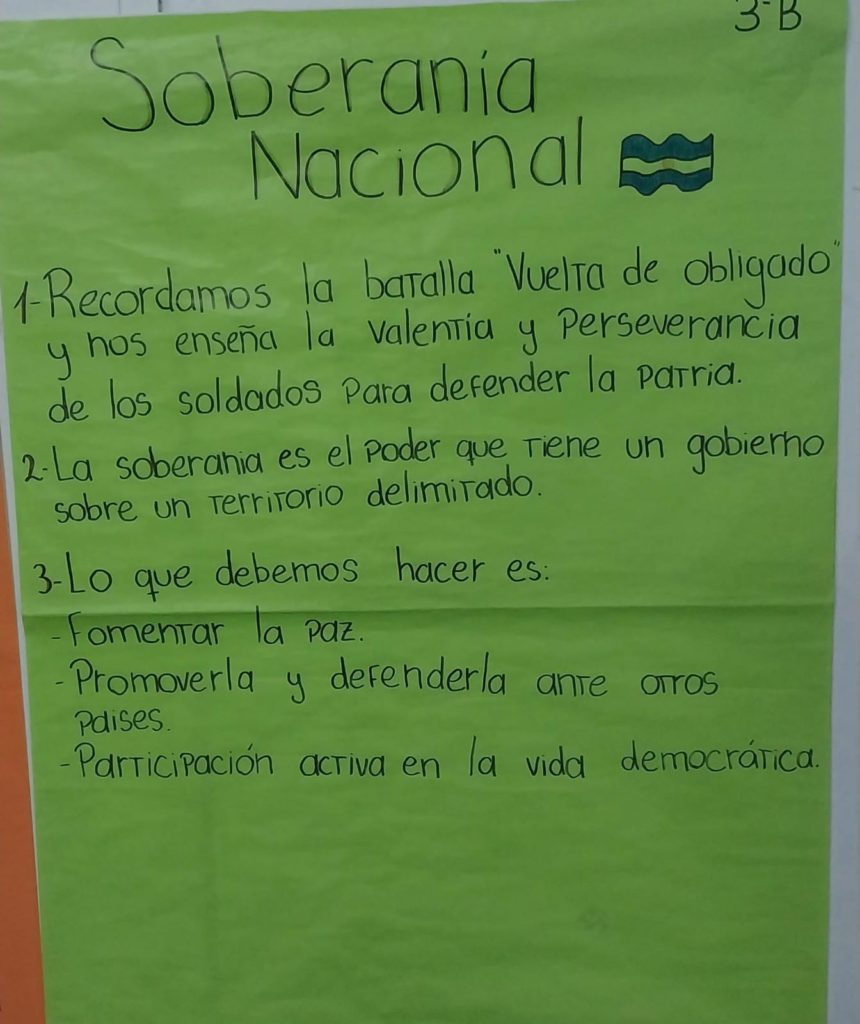 3-B
Soberanía
Nacional
1-Recordamos la batalla "Vuelta de obligado"
y nos enseña la valentía y perseverancia
de los soldados para defender la patria.
2-La soberania es el poder que tiene un gobierno
sobre un territorio delimitado.
3-Lo que debemos hacer es:
-Fomentar la paz.
-Promoverla y defenderla ante otros
paises.
-Participación activa en la vida democrática.